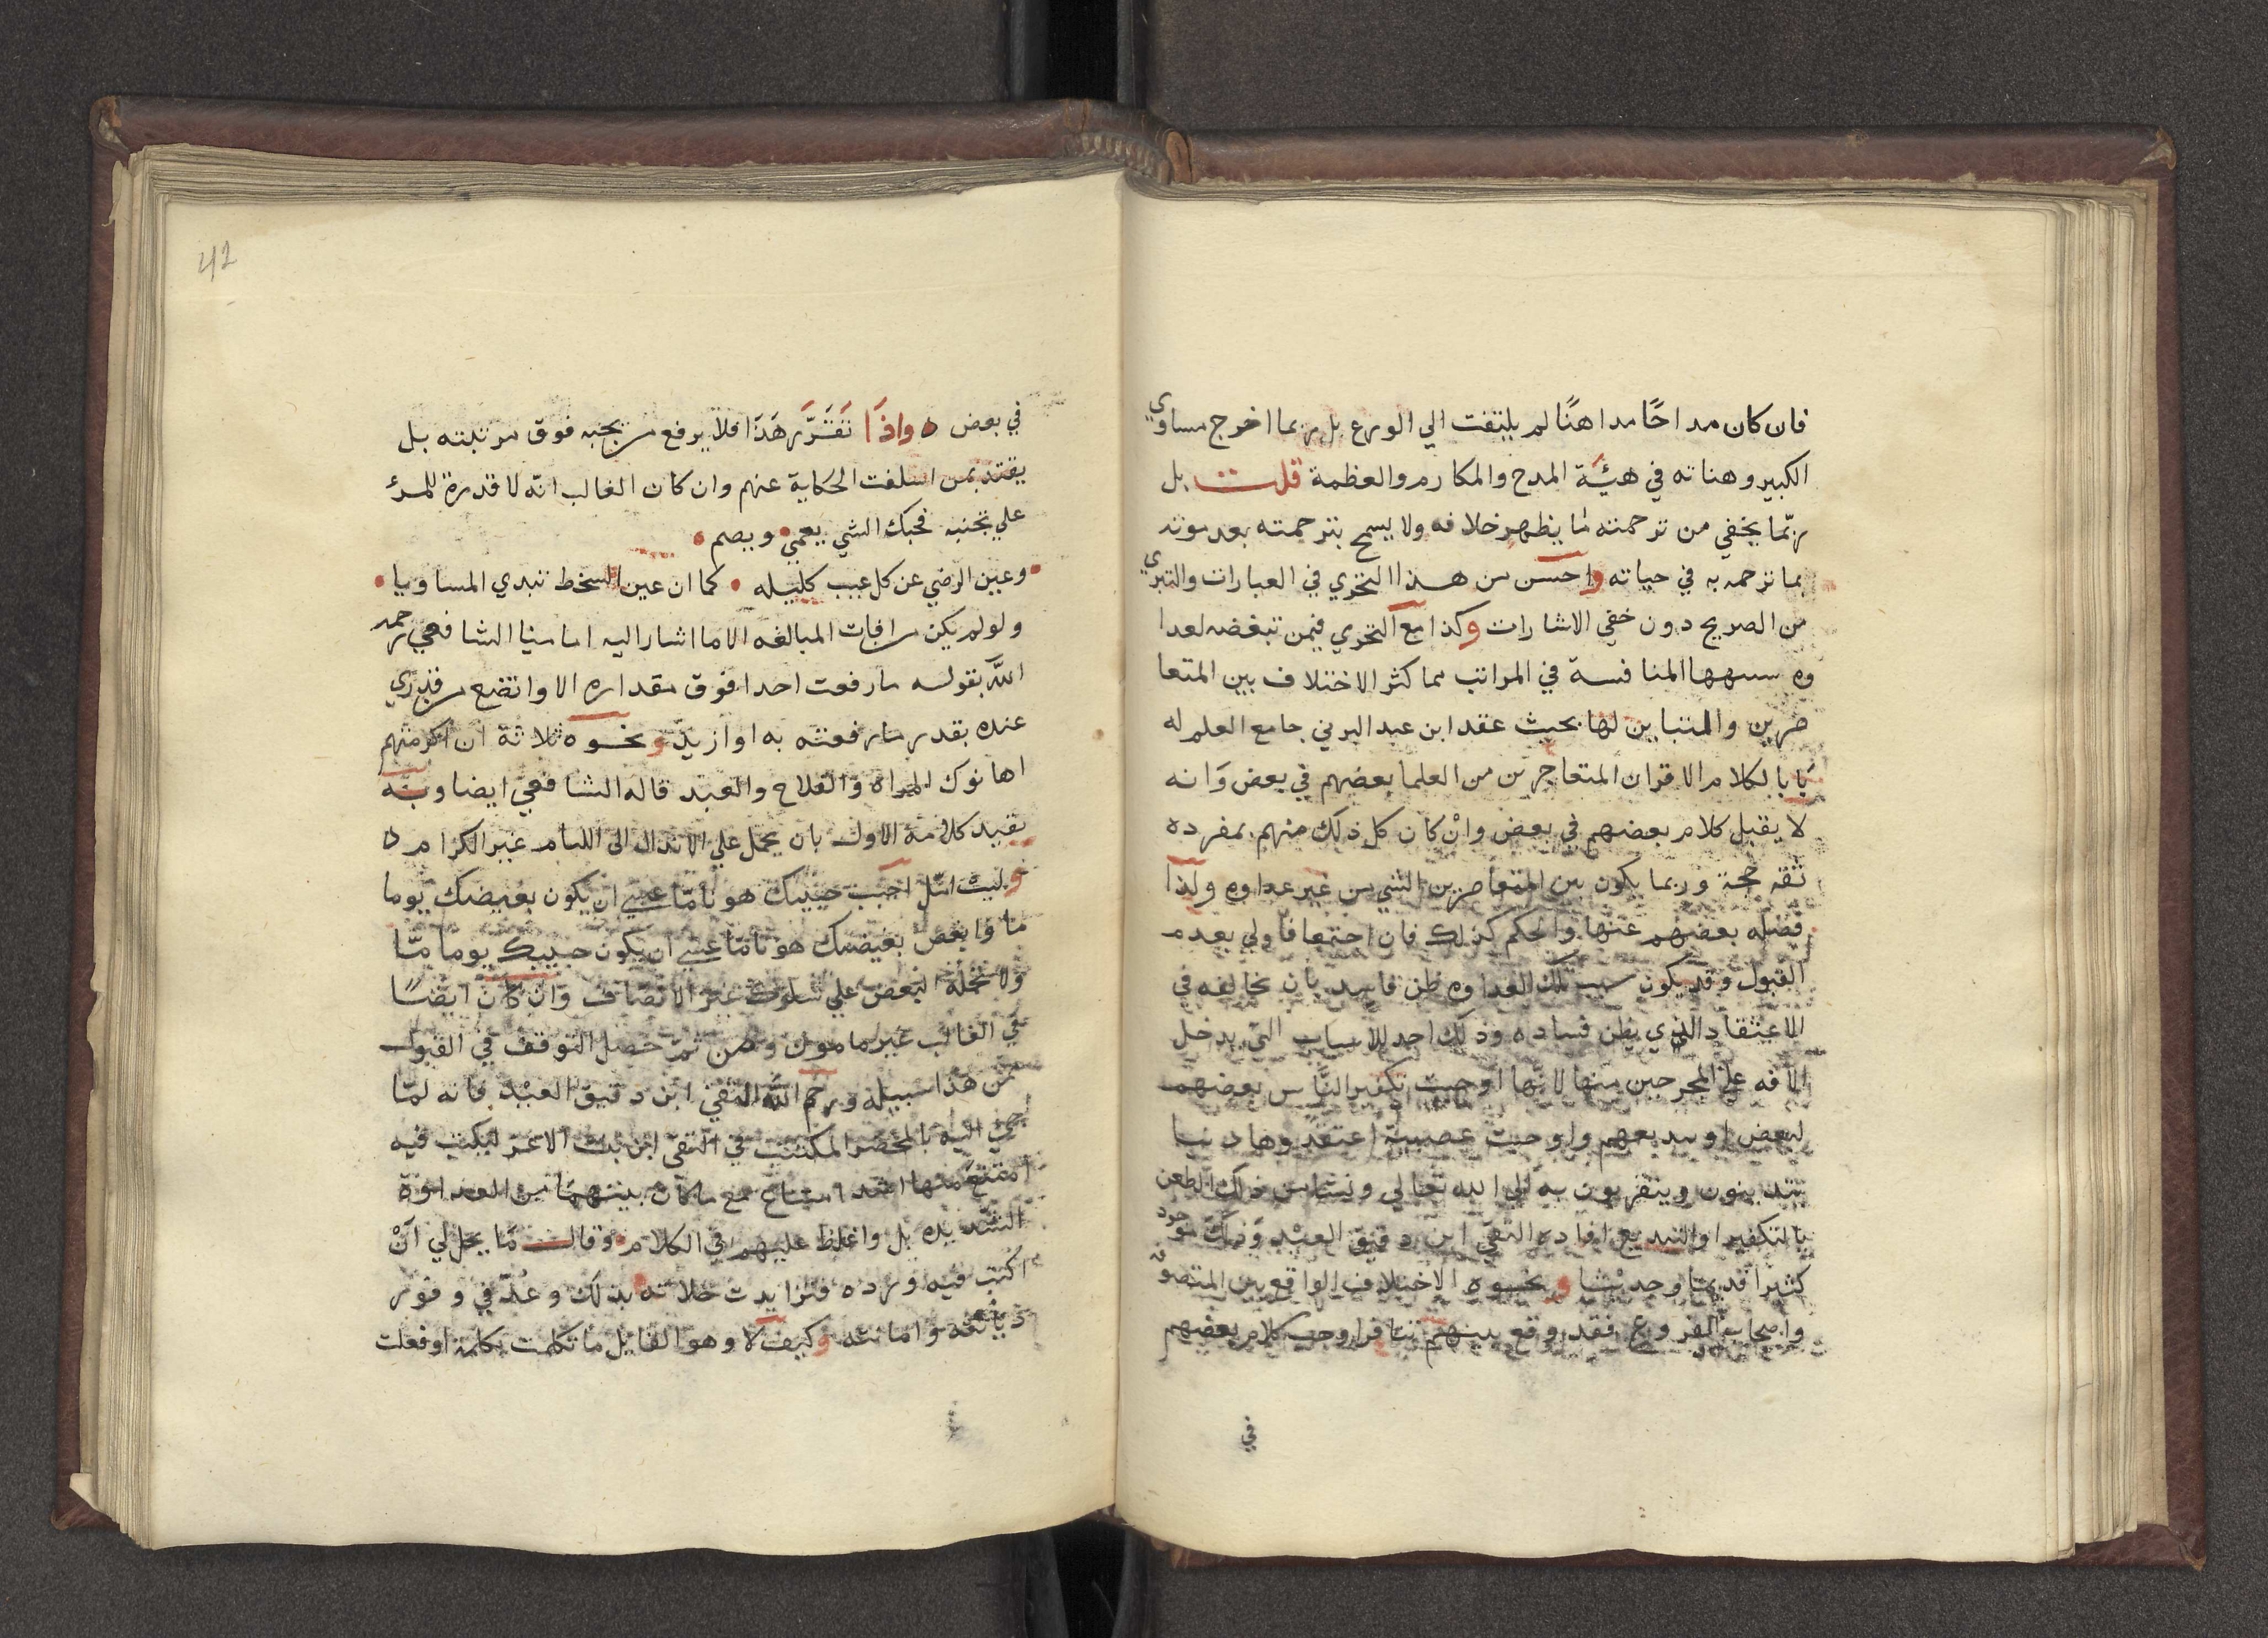 فان كان مداحًا مداهنًا لم يلتفت الي الورع بل ربما اخرج مساوي
الكبير وهناته في هيئَة المدح والمكارم والعظمة قلت بل
ربّما يخفي من ترجمته ما يظهر خلافه ولا يسمح بترجمته بعد موته
بما ترجمه به في حياته واحسن من هذا التحري في العبارات والتبري
من الصريح دون خفي الاشارات وكذا مع التحري فيمن تبغضه لعدا
وه سببها المنافسة في المراتب مما كثر الاختلاف بين المتعا
صرين والمتباين لها بحيث عقد ابن عبد البر في جامع العلم له
بَابا لكلام الاقران المتعاصرين من العلما بعضهم في بعض وَانه
لا يقبل كلام بعضهم في بعض وانْ كان كل ذلك منهم بمفرده
ثقه حجة وربما يكون بين المتعاصرين الشي من غير عداوه ولذا
فصله بعضهم عنها والحكم كذلك فان اجتمعا فاولي بعدم
القبول وقد يكون سبب تلك العداوه ظن فاسد بان يخالفه في
الاعتقاد الذي يظن فساده وذلك احد الاسباب التي يدخل
الآفه علي المجرحين منها لانّها اوجبت تكفير النَّاس بعضهم
لبعض او تبديعهم واوجبت عصبية اعتقدوها دينا
يتدينون ويتقربون به الي الله تعالي ونشا من ذلك الطعن
بالتكفير او التبديع افاده التقي ابن دقيق العيْد وَذلك موجود
كثيرا قديما وحديثا ونحوه الاختلاف الواقع بين المتصوفه
واصحاب الفروع فقد وقع بينهم تنافر اوجب كلام بعضهم
في
42
في بعض ه واذَا تَقَرَّر هَذَا فلا يرفع من يحبه فوق مرتبته بل
يقتد بمن اسلفت الحكاية عنهم وان كان الغالب انّه لا قدرة للمرء
علي تجنبه فحبك الشي يعمي ويصم
وعين الرضي عن كل عيب كليله كما ان عين السخط تبدي المساويا
ولو لم يكن من افات المبالغه الا ما اشار اليه امامنا الشافعي رحمه
اللّه بقوله ما رفعت احدا فوق مقداره الا واتضع من قدري
عنده بقدر ما رفعته به او ازيد ونحوه ثلاثة ان اكرمتهم
اهانوك المراه والفلاح والعبد قاله الشافعي ايضا وبه
يقيد كلامه الاول بان يحمل علي الانذال الى اللئام غير الكرام ه
وليتَ امتثل احبب حبيبك هونا مّا عسي ان يكون بغيضك يوما
ما وابغض بغيضك هونا مّا عسي ان يكون حبيبك يوما مّا
ولا تحمله البغض علي سلوك غير الانصاف وان كان ايضًا
في الغالب غير مامون ومن ثمّ حصل التوقف في القبول
ممن هذا سبيله ورحم اللّه التقي ابن دقيق العيْد فانه لمّا
جئ اليه بالمحضر المكتتب في التقي ابن بنت الاعز ليكتب فيه
امتنع منها اشد امتناع مع ما كان بينهما من العداوة
الشّديده بل واغلظ عليهم في الكلام وقال مَا يحل لي انْ
اكتب فيه ورده فتزايدت جلالته بذلك وعُدّ في وفور
ديانته وامانته وكيف لا وهو القايل ما تكلمت بكلمة او فعلت